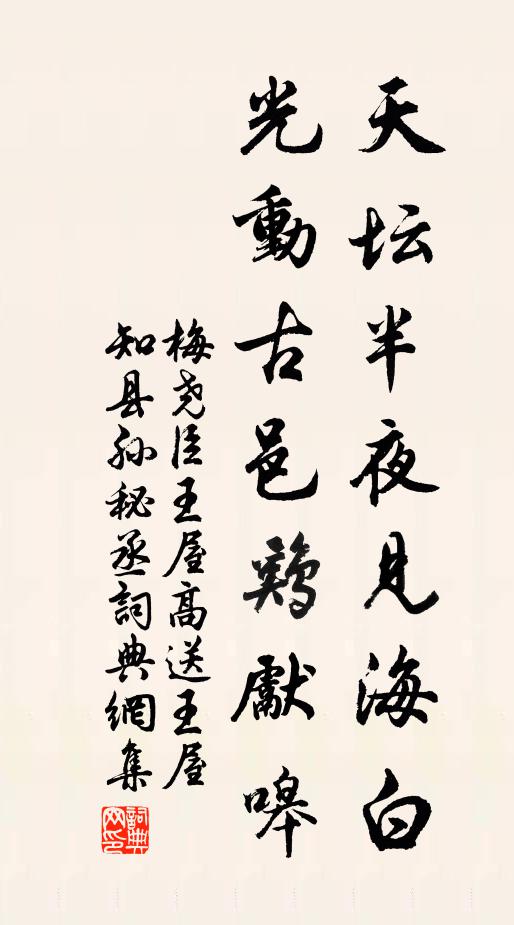 天坛半夜见海白
光動古邑鷄獻嗥
梅尧臣王屋高送王屋
知县孙秘丞詞典網集
詞典网印